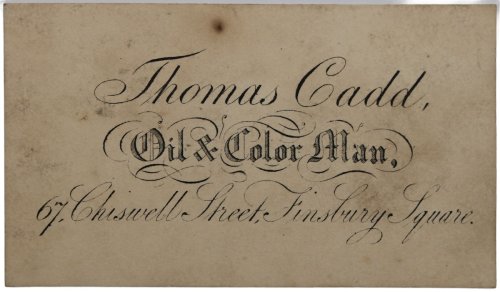 Thomas Cadd,
Oil & Color Man,
67, Chiswell Street, Finsbury Square.